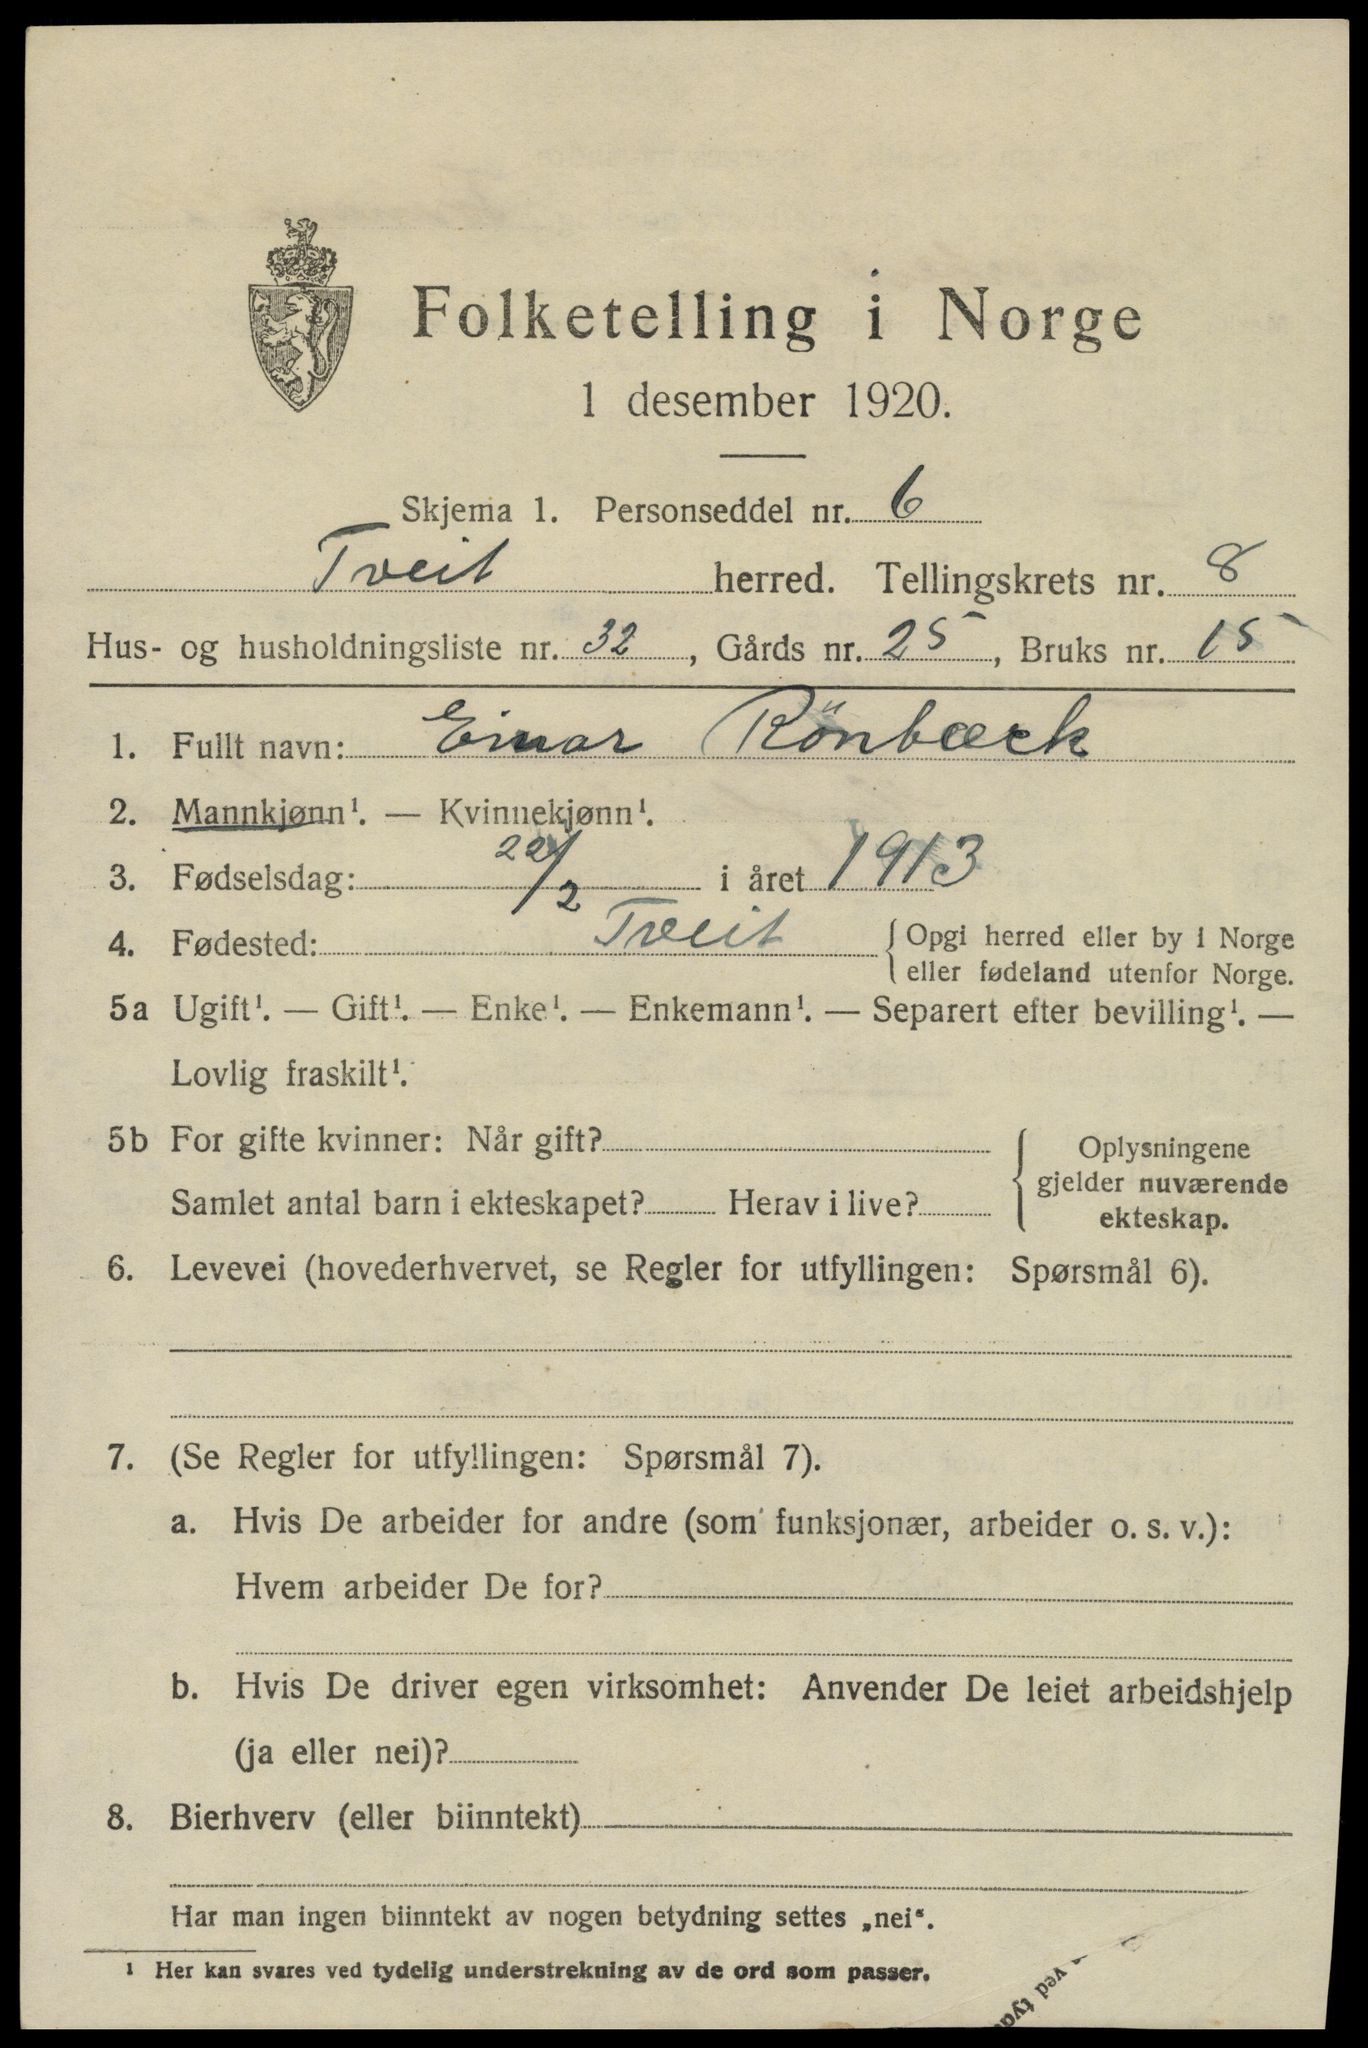 Folketelling i Norge
1 desember 1920.
Skjema 1. Personseddel nr. 6
Tveit herred. Tellingskrets nr. 8
Hus- og husholdningsliste nr. 32, Gårds nr. 25, Bruks nr. 15
1. Fullt navn: Einar Rönbæck
2. Mannkjønn¹. — Kvinnekjønn¹.
3. Fødselsdag: 22/2 i året 1913
4. Fødested: Tveit {Opgi herred eller by i Norge
eller fødeland utenfor Norge.
5a Ugift¹. — Gift¹. — Enke¹. — Enkemann¹. — Separert efter bevilling¹. —
Lovlig fraskilt¹.
5b For gifte kvinner: Når gift?
Samlet antal barn i ekteskapet? Herav i live?
{Oplysningene
gjelder nuværende
ekteskap.
6. Levevei (hovederhvervet, se Regler for utfyllingen: Spørsmål 6).
7. (Se Regler for utfyllingen: Spørsmål 7).
a. Hvis De arbeider for andre (som funksjonær, arbeider o. s. v.):
Hvem arbeider De for?
b. Hvis De driver egen virksomhet: Anvender De leiet arbeidshjelp
(ja eller nei)?
8. Bierhverv (eller biinntekt)
Har man ingen biinntekt av nogen betydning settes „nei“.
¹ Her kan svares ved tydelig understrekning av de ord som passer.
ved tyde